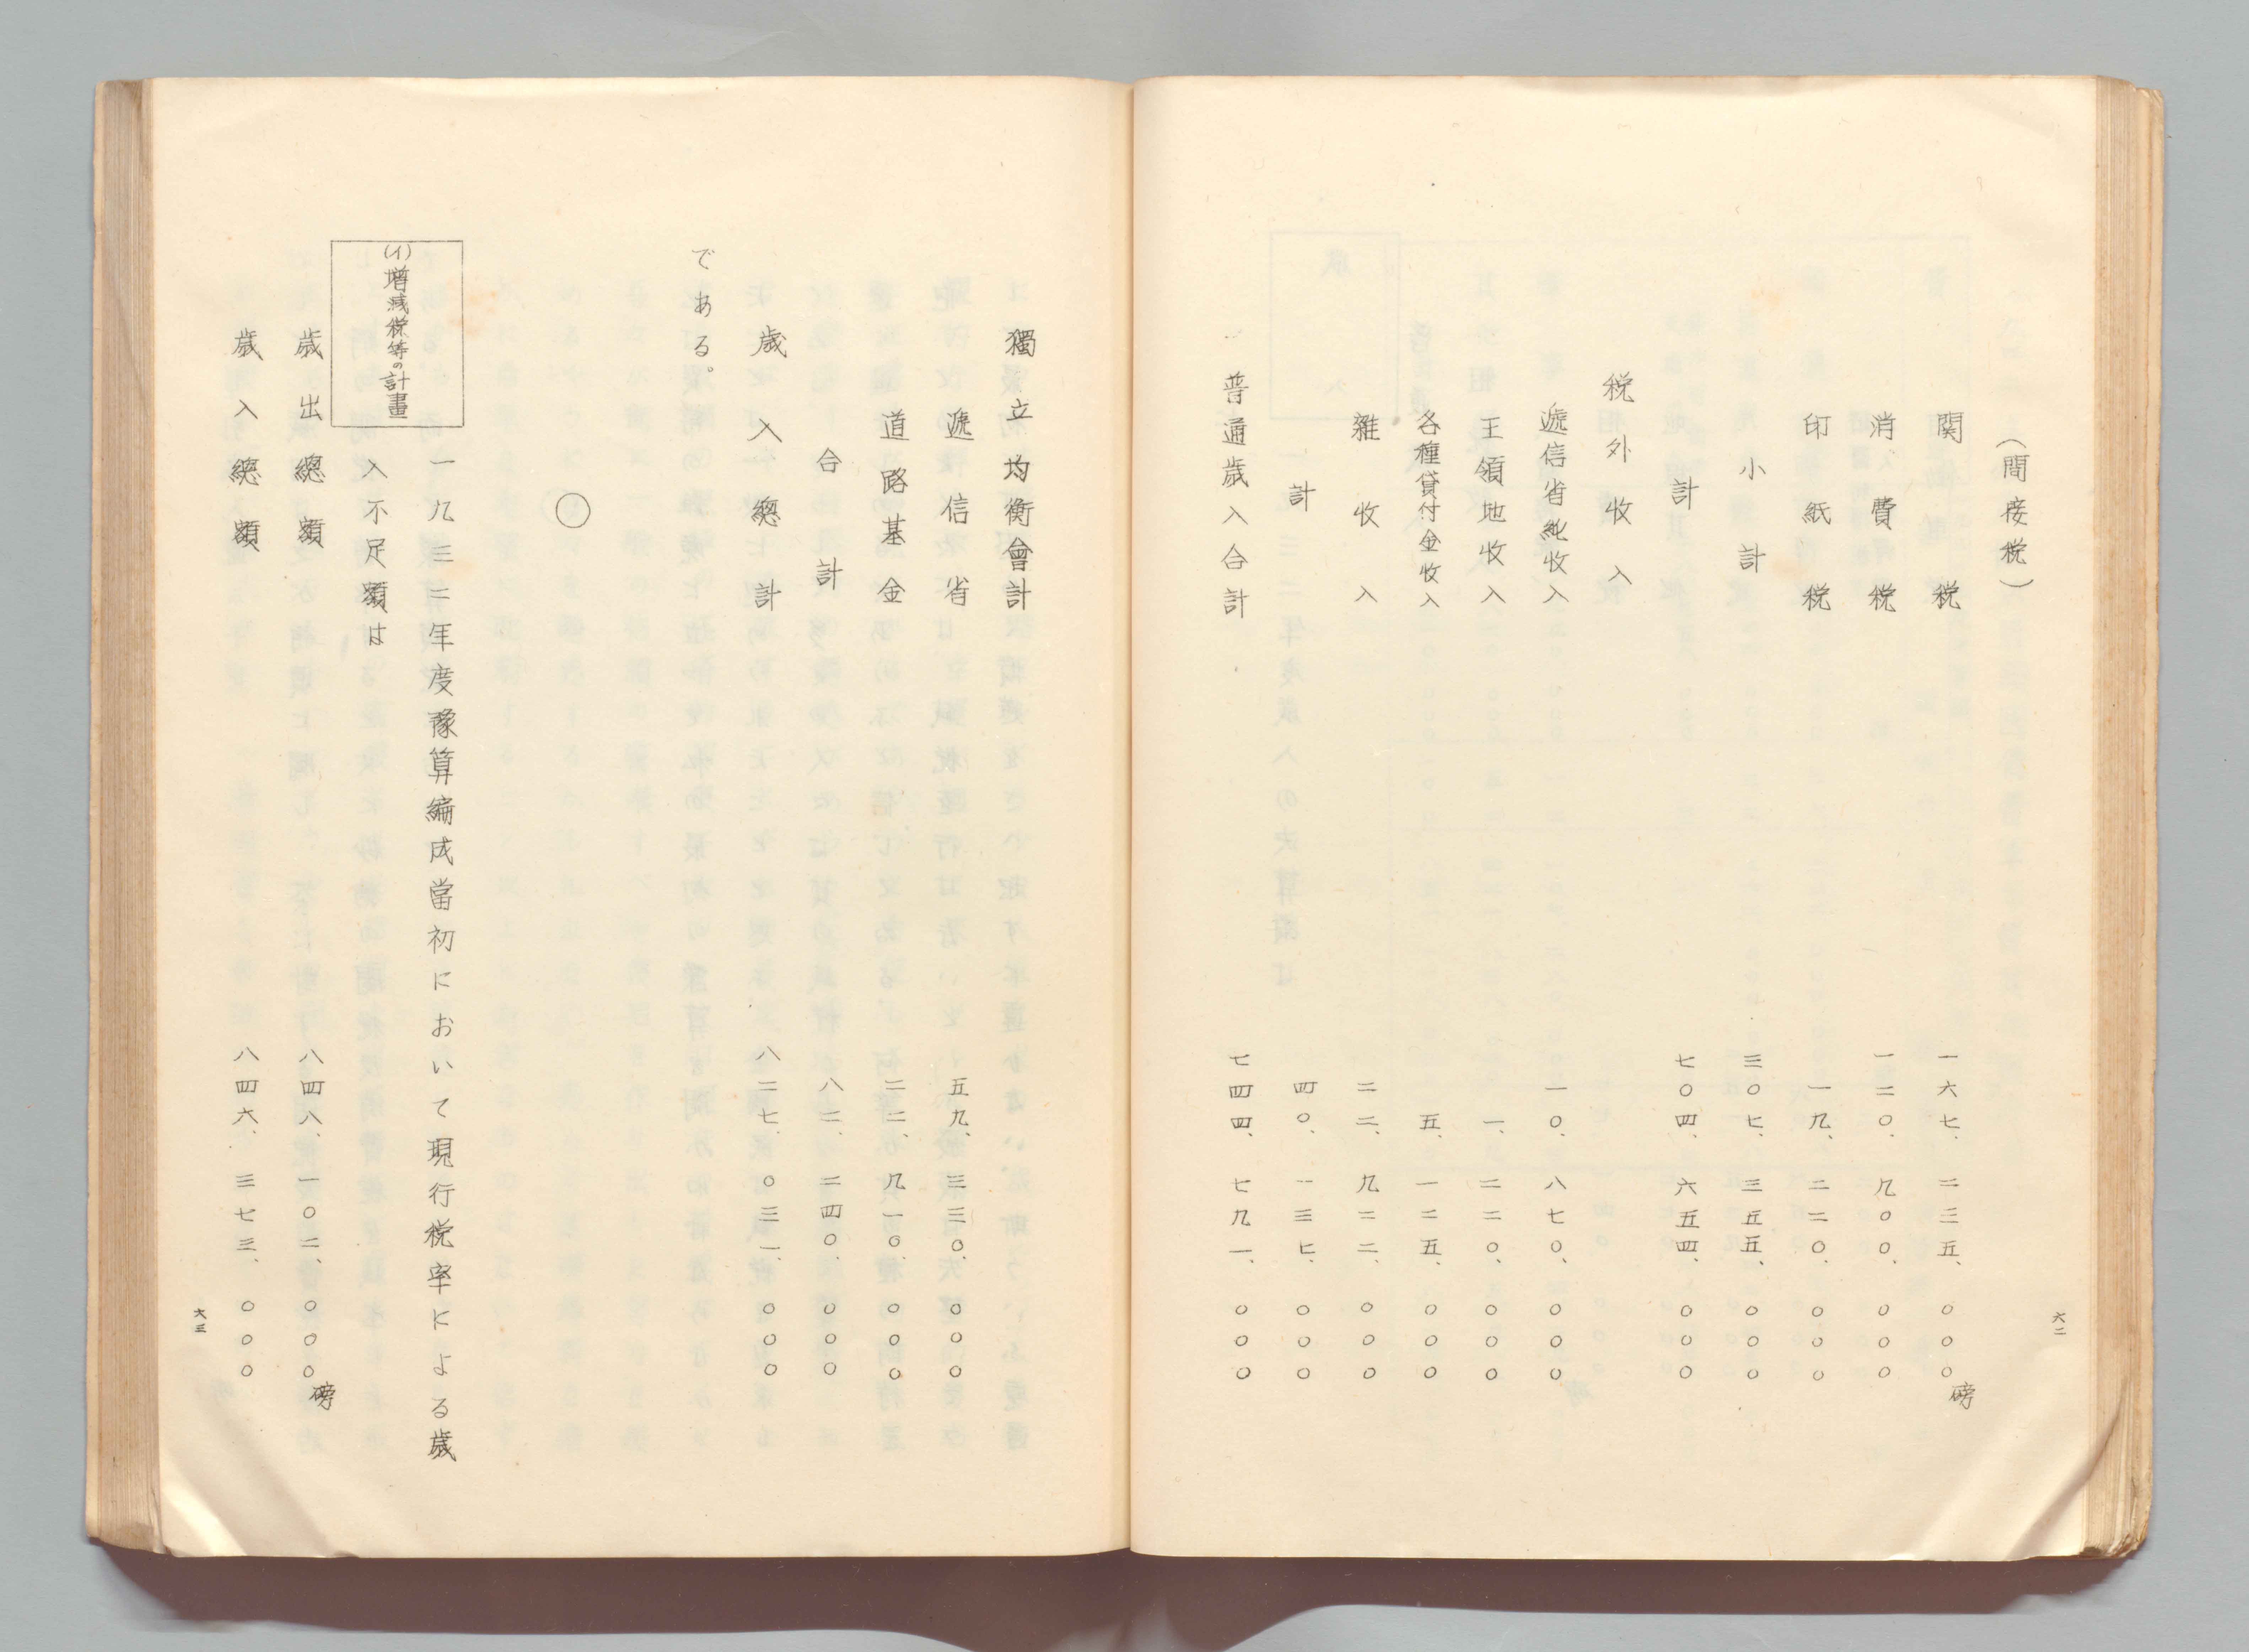 (間接税)
関税 一六七、二三五、〇〇〇磅
消費税 一二〇、九〇〇、〇〇〇
印紙税 一九、二二〇、〇〇〇
小計 三〇七、三五五、〇〇〇
計 七〇四、六五四、〇〇〇
税外收入
遞信省純收入 一〇、八七〇、〇〇〇
王領地收入 一、二二〇、〇〇〇
各種貸付金收入 五、一二五、〇〇〇
雜收入 二二、九二二、〇〇〇
計 四〇、一三七、〇〇〇
普通歳入合計 七四四、七九一、〇〇〇
六二
獨立均衡會計
遞信省 五九、三三〇、〇〇〇
道路基金 二二、九一〇、〇〇〇
合計 八二、二四〇、〇〇〇
歳入總計 八二七、〇三一、〇〇〇
である。
〇
(イ)增減税等の計畫
一九三二年度豫算編成當初において現行税率による歳
入不足額は
歳出總額 八四八、一〇二、〇〇〇磅
歳入總額 八四六、三七三、〇〇〇
六三